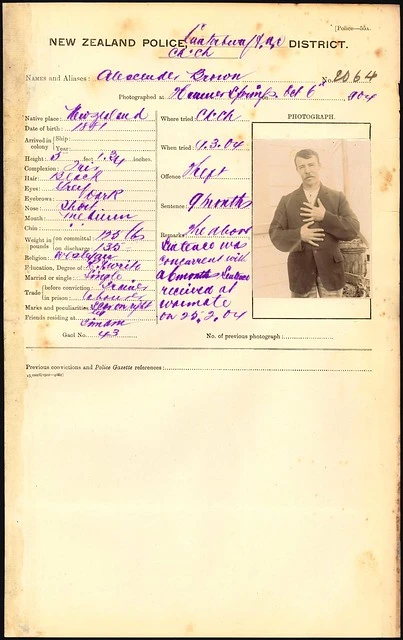 [Police—55A.
NEW ZEALAND POLICE, Canterbury DISTRICT.
Ch.Ch
NAMES and Aliases: Alexander Brown No. 2064
Photographed at Hanmer Springs, Oct 6th 1904
Native place: New Zealand
Date of birth: 1881
Arrived in colony { Ship:
Year:
Height: 5 feet 1 3/4 inches.
Complexion: Fair
Hair: Black
Eyes: Grey
Eyebrows: Dark
Nose: Short
Mouth: medium
Chin: " "
Weight in pounds { on committal 125 lbs
on discharge 135
Religion: Wesleyan
Education, Degree of: R. write
Married or single: Single
Trade { before conviction
in prison: Labourer
Marks and peculiarities: Scar on right
Friends residing at
Timaru
Gaol No. 43
Where tried Ch.Ch
When tried 1.3.04
Offence Theft
Sentence: 9 months
Remarks: The above
Sentence was
concurrent with
a 6 months Sentence
received at
Waimate
on 25.2.04
PHOTOGRAPH.
No. of previous photograph:
Previous convictions and Police Gazette references: